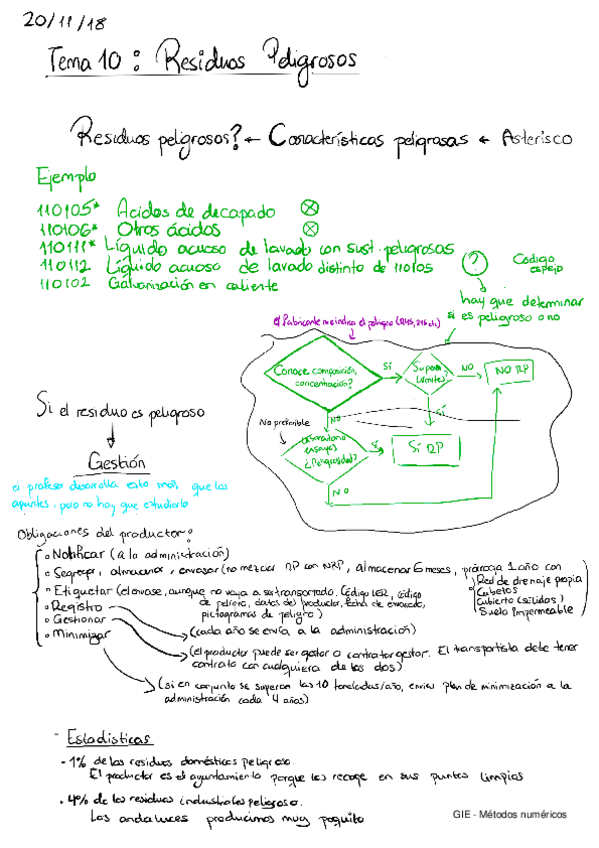 20/11/18
Tema 10: Residuos Peligrosos
Residuos peligrosos? ← Características peligrosas ← Asterisco
Ejemplo
110105* Ácidos de decapado ⊗
110106* Otros ácidos ⊗
110111* Líquido acuoso de lavado con sust. peligrosas
110112 Líquido acuoso de lavado distinto de 110105
110102 Galvanización en caliente
? Código espejo
hay que determinar
si es peligroso o no
el fabricante me indica el peligro
Conoce composición,
concentración?
Sí
Supera
límites
NO
NO RP
Sí
NO
No preferible
Laboratorio
ensayos
¿Peligrosidad?
Sí
Sí RP
NO
Si el residuo es peligroso
Gestión
el profesor desarrolla esto más que los
apuntes, pero no hay que estudiarlo
Obligaciones del productor:
• Notificar (a la administración)
• Segregar, almacenar, envasar (no mezclar RP con NRP, almacenar 6 meses, prórroga 1 año con
Red de drenaje propia
Cubetos
Cubierto (sólidos)
Suelo Impermeable)
• Etiquetar (el envase, aunque no vaya a ser transportado. Código LER, código
de peligro, datos del productor, fecha de envasado,
pictogramas de peligro)
• Registro
(cada año se envía a la administración)
• Gestionar
(el productor puede ser gestor o contratar gestor. El transportista debe tener
contrato con cualquiera de los dos)
• Minimizar
(si en conjunto se superan las 10 toneladas/año, enviar plan de minimización a la
administración cada 4 años)
- Estadísticas
• 1% de los residuos domésticos peligroso.
El productor es el ayuntamiento porque los recoge en sus puntos limpios
• 4% de los residuos industriales peligroso.
Los andaluces producimos muy poquito
GIE - Métodos numéricos